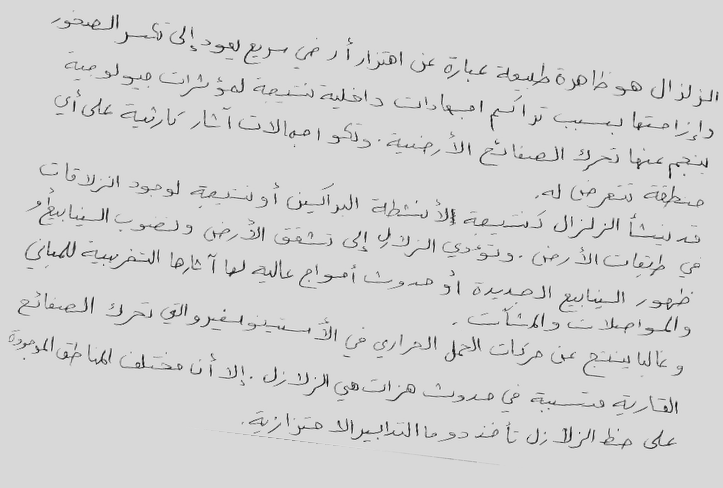 الزلزال هو ظاهرة طبيعة عبارة عن اهتزار أرضي سريع يعود إلى تكسر الصخور
وإزاحتها بسبب تراكم اجهادات داخلية نتيجة لمؤثرات جيولوجية
ينجم عنها تحرك الصفائح الأرضية. وتكو اجمالات آثار كارثية على أي
منطقة تتعرض له.
قد ينشأ الزلزال كنتيجة لأنشطة البراكين أو نتيجة لوجود انزلاقات
في طبقات الأرض. وتؤدي الزلازل إلى تشقق الأرض ونضوب الينابيع أو
ظهور الينابيع الجديدة أو حدوث أمواج عالية لها آثارها التخريبية للمباني
والمواصلات والمنشآت.
وغالبا ينتج عن حركات الحمل الحراري في الأستينوسفير والتي تحرك الصفائح
القارية متسببة في حدوث هزات هي الزلازل. إلا أن مختلف المناطق الموجودة
على خط الزلازل تأخذ دوما التدابير الاحترازية.